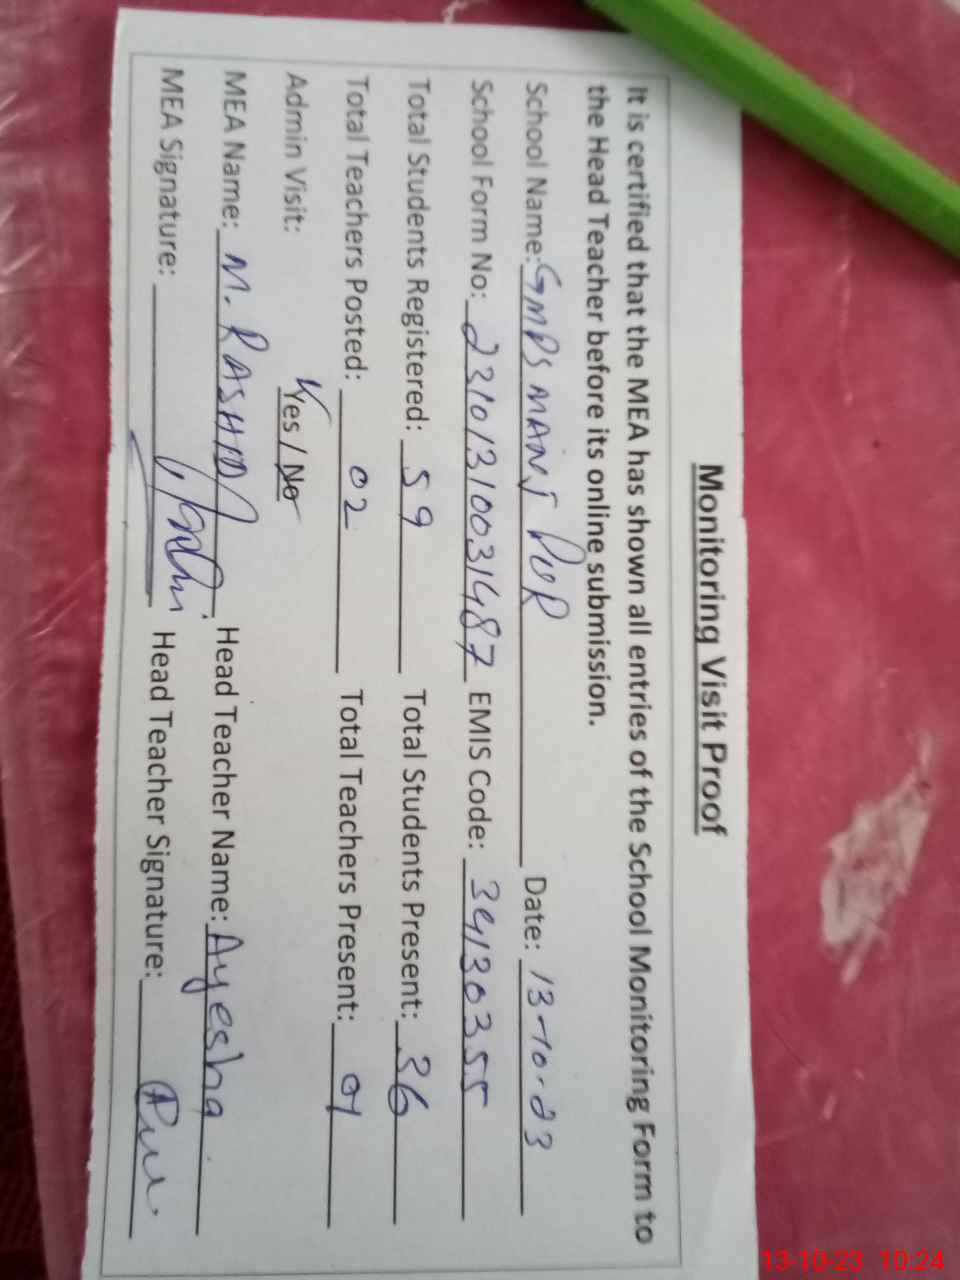 Monitoring Visit Proof
It is certified that the MEA has shown all entries of the School Monitoring Form to
the Head Teacher before its online submission.
School Name: GMPS MANJ PUR Date: 13-10-23
School Form No: 23101310031487 EMIS Code: 34130355
Total Students Registered: 59 Total Students Present: 36
Total Teachers Posted: 02 Total Teachers Present: 01
Admin Visit: Yes / No
MEA Name: M. RASHID Head Teacher Name: Ayesha
MEA Signature: Head Teacher Signature:
13-10-23 10:24